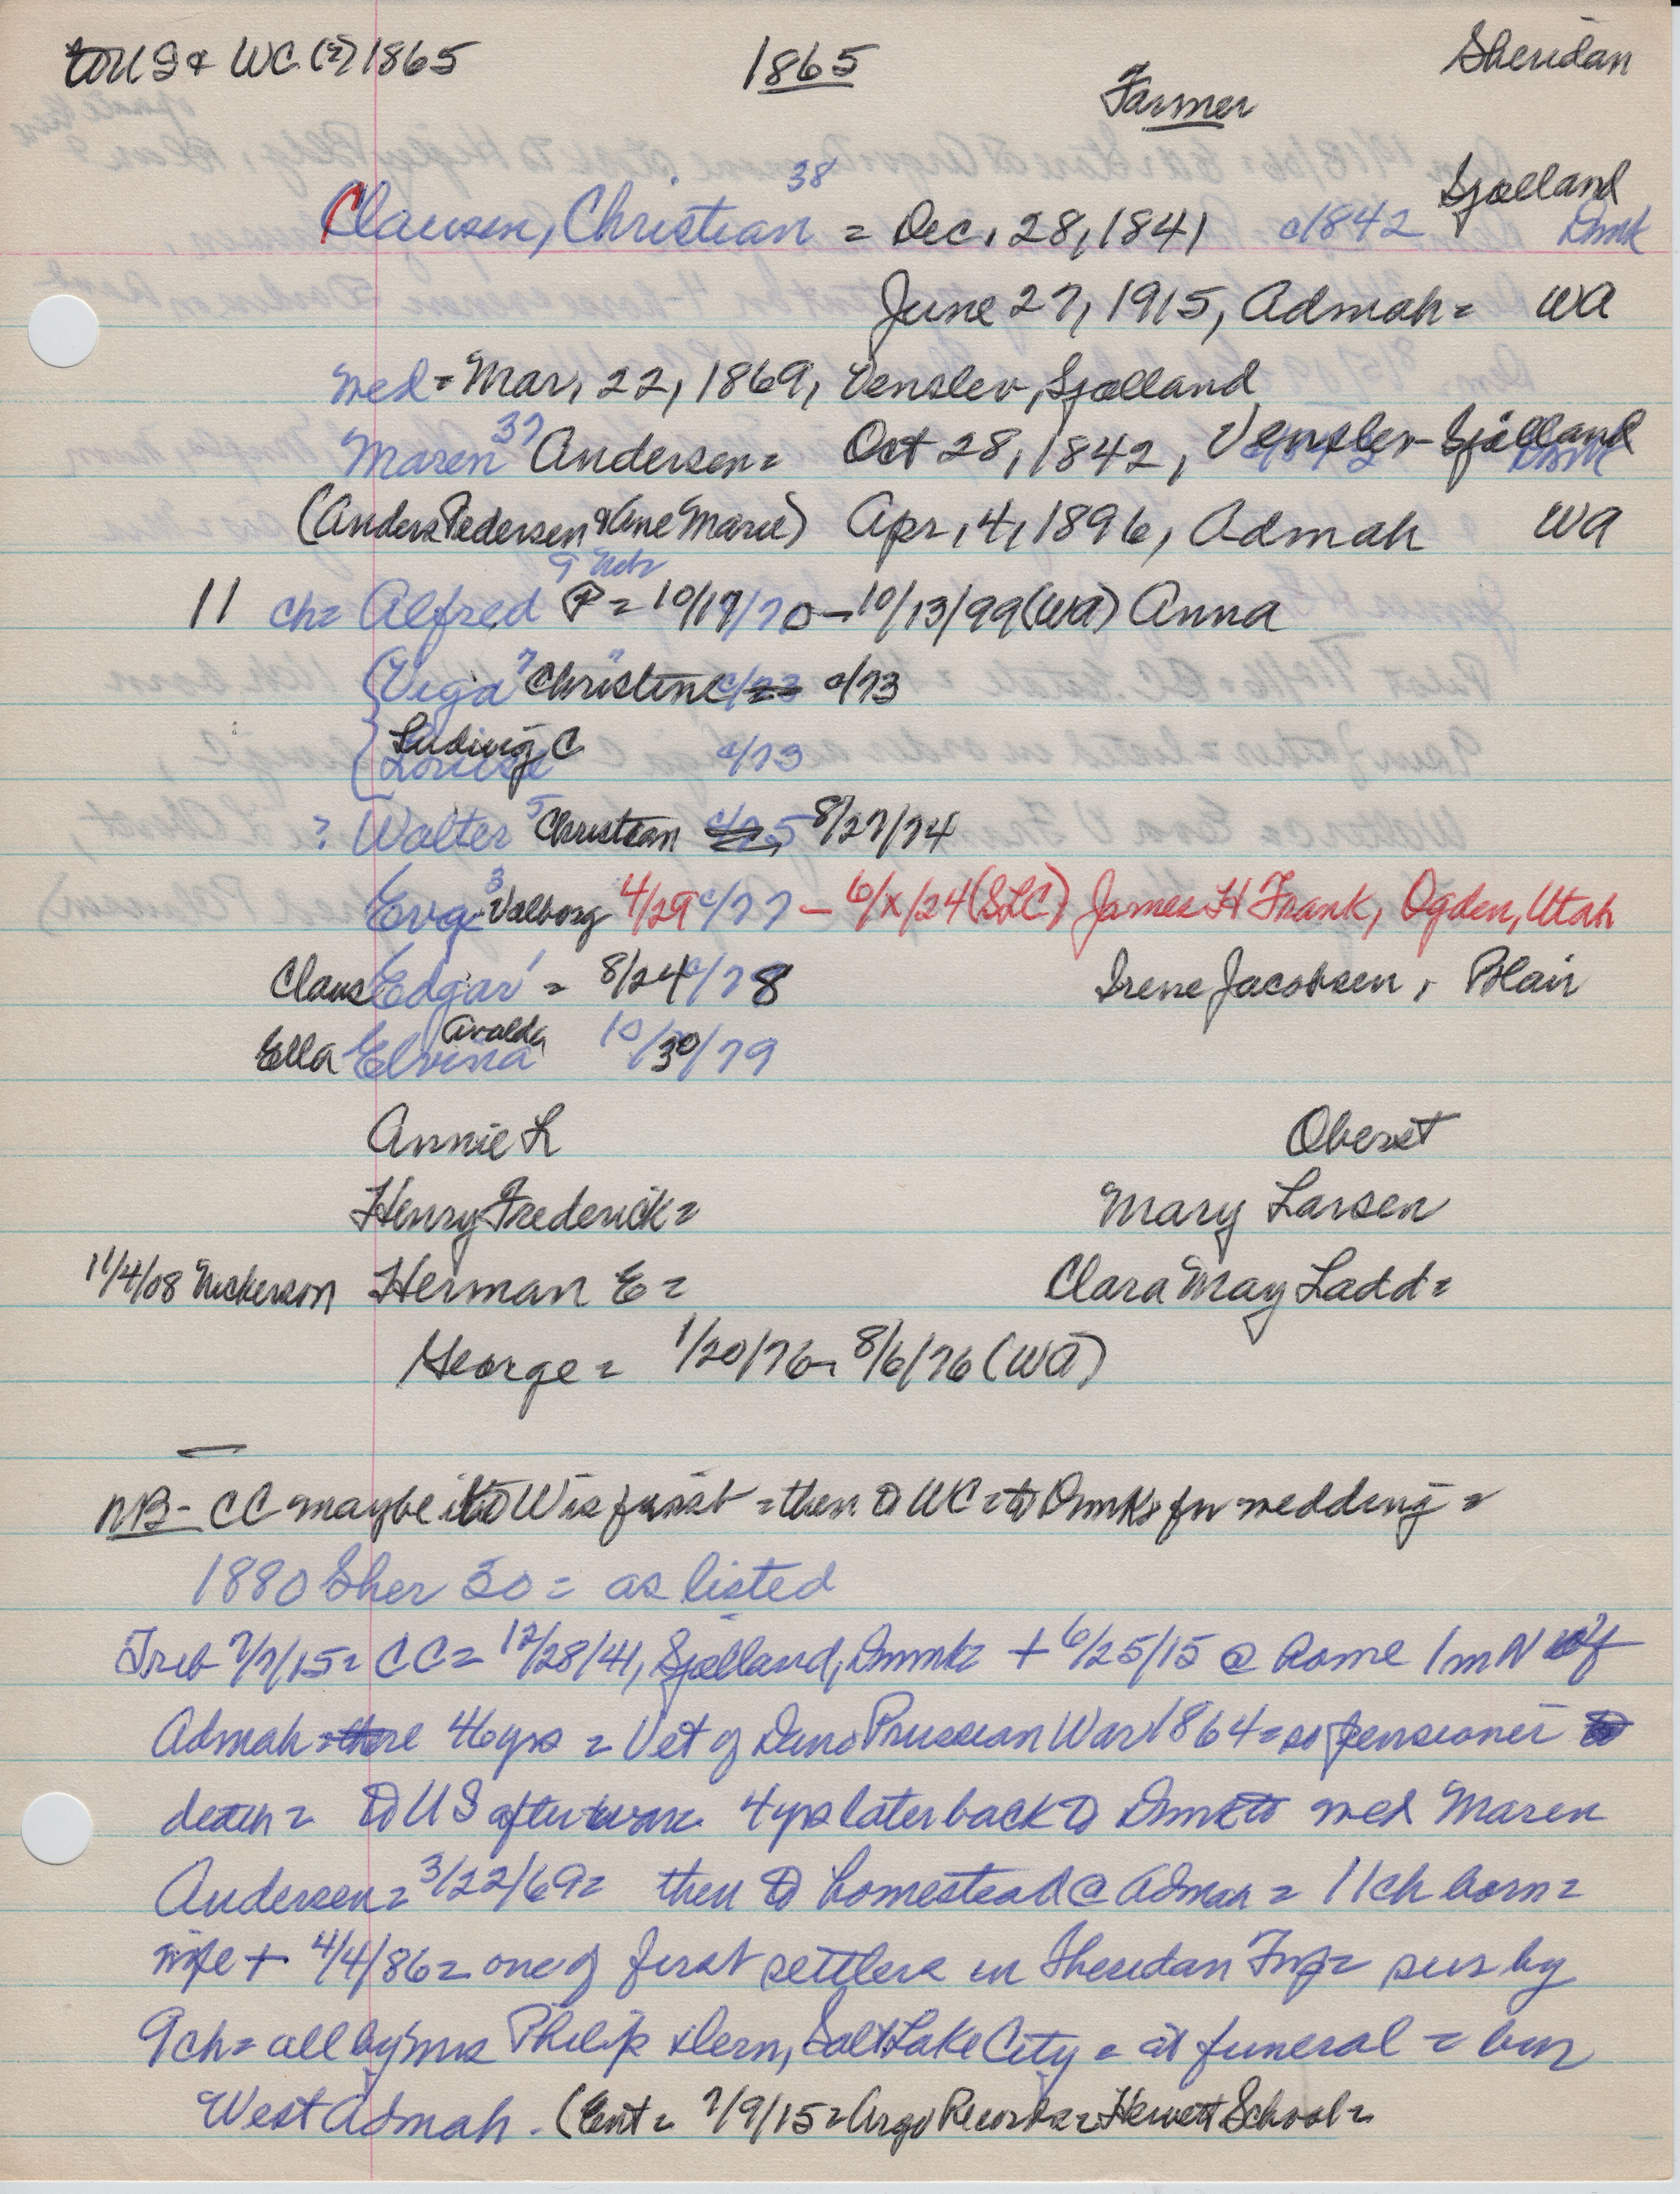 to US & WC (?) 1865 1865 Sheridan
Farmer
Clausen, Christian 38 = Dec. 28, 1841 c1842 Sjælland Dmk
June 27, 1915, Admah = WA
wed = Mar. 22, 1869, Venslev, Sjælland
Maren 37 Andersen = Oct 28, 1842, Venslev Sjælland Dmk
(Anders Pedersen & Ane Marie) Apr. 4, 1896, Admah WA
11 ch = Alfred 9 Neb P = 10/17/70 – 10/13/99 (WA) Anna
Viga 7 "Christine c/73
Ludwig C c/73
? Walter 5 Christian 8/27/74
Eva 3 Valborg 4/29 c/77 – 6/x/24 (SLC) James H Frank, Ogden, Utah
Claus Edgar 1 = 8/24 c/78 Irene Jacobsen, Blair
Ella Elvina Avalda 10/30/79
Annie L Oberst
Henry Frederick = Mary Larsen
11/4/08 Nickerson Herman E = Clara May Ladd =
George = 1/20/76 – 8/6/76 (WA)
NB – CC maybe to Wis first = then to WC = to Dmk for wedding =
1880 Sher 30 = as listed
Trib 7/7/15 = CC = 12/28/41, Sjælland, Dnmk + 6/25/15 @ home 1 m N of
Admah = there 46 yrs = Vet of Dano Prussian War 1864 = so pensioner to
death = to US after war 4 yrs later back to Dnmk to wed Maren
Andersen = 3/22/69 = then to homestead @ Admah = 11 ch born =
wife + 4/4/86 = one of first settlers in Sheridan Twp = surs by
9 ch = all by Mrs Philip Hern, Salt Lake City = at funeral = bur
West Admah. (Ent = 7/9/15 = Argo Records = Hewett School =